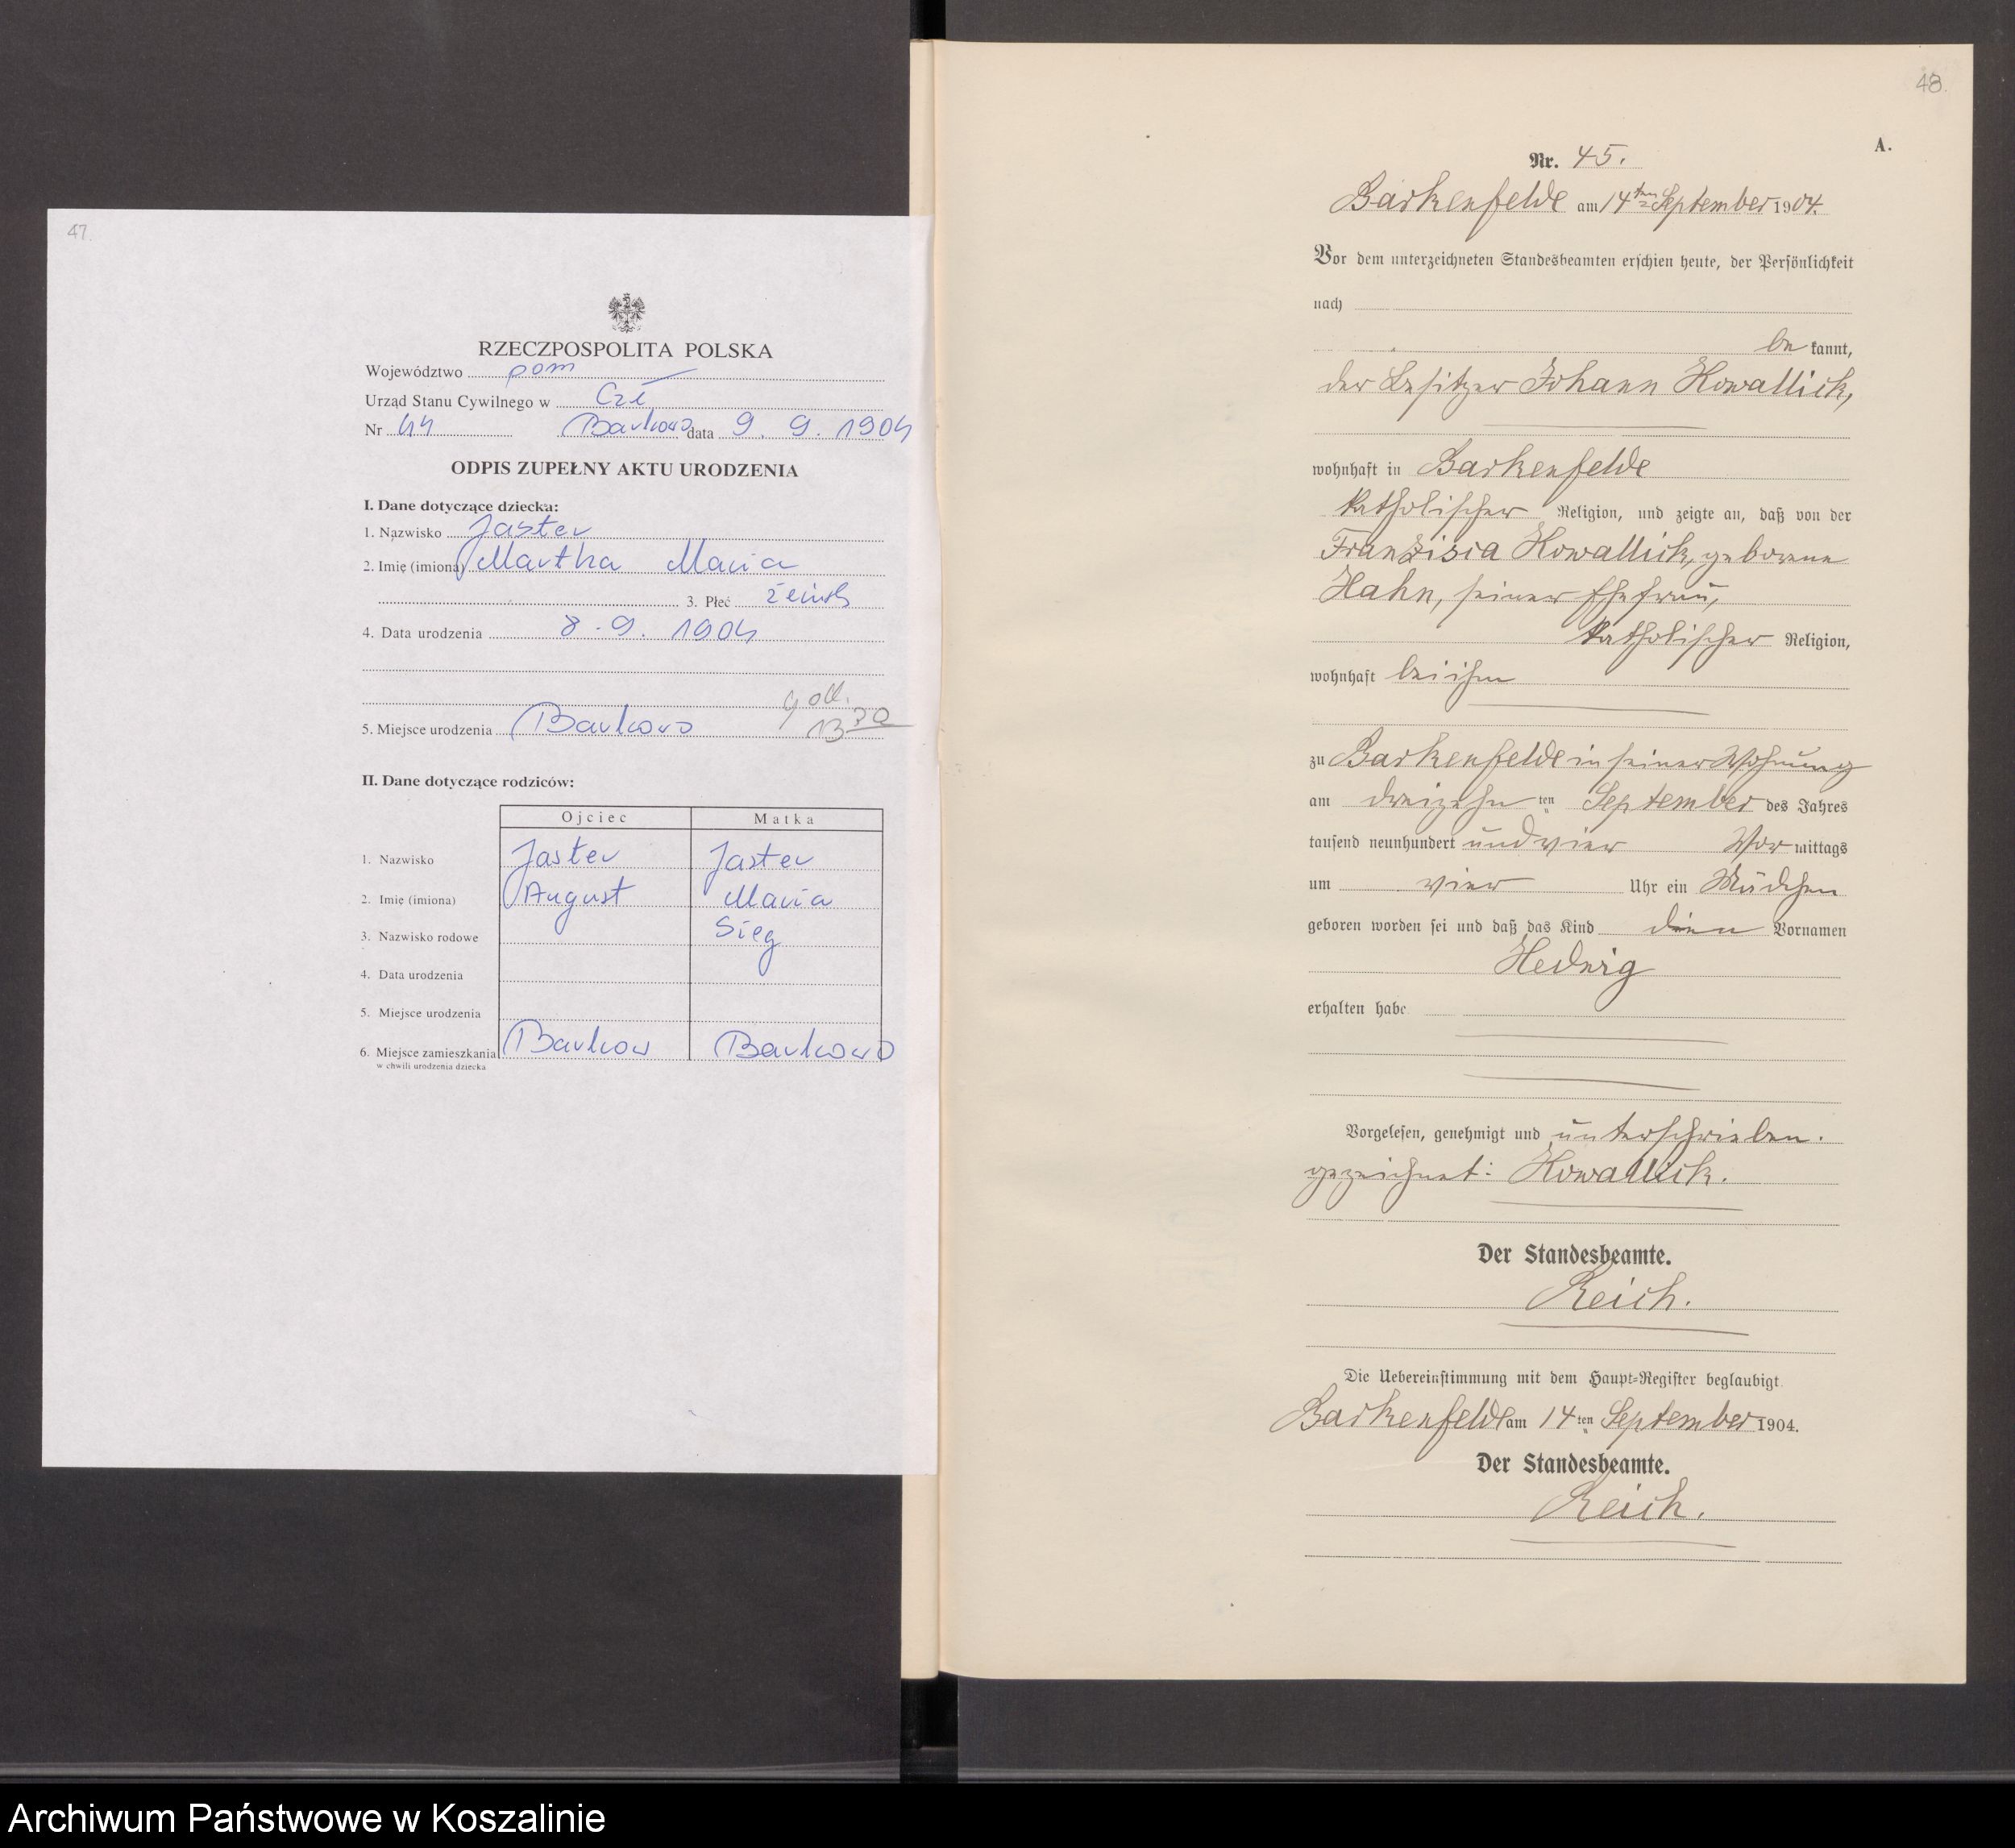 47.
RZECZPOSPOLITA POLSKA
Województwo pom
Urząd Stanu Cywilnego w Czł
Nr 44 Barkowo data 9. 9. 1904
ODPIS ZUPEŁNY AKTU URODZENIA
I. Dane dotyczące dziecka:
1. Nazwisko Jaster
2. Imię (imiona) Martha Maria
3. Płeć żeńsk
4. Data urodzenia 8. 9. 1904
godz.
13 30
5. Miejsce urodzenia Barkowo
II. Dane dotyczące rodziców:
Ojciec Matka
1. Nazwisko Jaster Jaster
2. Imię (imiona) August Maria
3. Nazwisko rodowe Sieg
4. Data urodzenia
5. Miejsce urodzenia
6. Miejsce zamieszkania Barkow Barkowo
w chwili urodzenia dziecka
48.
A.
Nr. 45.
Barkenfelde am 14ten September 1904.
Vor dem unterzeichneten Standesbeamten erschien heute, der Persönlichkeit
nach
be kannt,
der Besitzer Johann Kowallick,
wohnhaft in Barkenfelde
katholischer Religion, und zeigte an, daß von der
Franzisca Kowallick, geborene
Hahn, seiner Ehefrau,
katholischer Religion,
wohnhaft bei ihm
zu Barkenfelde in seiner Wohnung
am dreizehn ten September des Jahres
tausend neunhundert und vier Vor mittags
um vier Uhr ein Mädchen
geboren worden sei und daß das Kind den Vornamen
Hedwig
erhalten habe
Vorgelesen, genehmigt und unterschrieben.
gezeichnet: Kowallick.
Der Standesbeamte.
Reich.
Die Uebereinstimmung mit dem Haupt-Register beglaubigt
Barkenfelde am 14 ten September 1904.
Der Standesbeamte.
Reich.
Archiwum Państwowe w Koszalinie